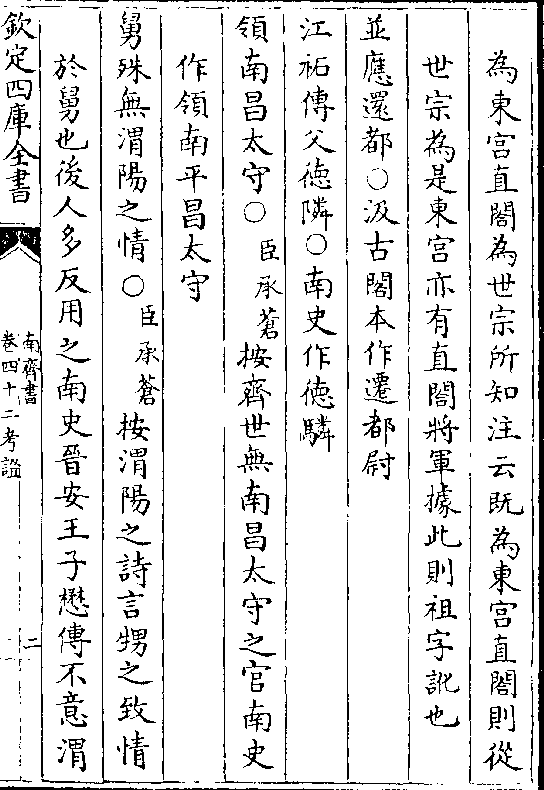 為東宫直閤為世宗所知注云既為東宫直閤則從
世宗為是東宫亦有直閤將軍據此則祖字訛也
並應還都○汲古閣本作遷都尉
江祏傳父徳隣○南史作徳驎
領南昌太守○臣承蒼按齊世無南昌太守之官南史
作領南平昌太守
舅殊無渭陽之情○臣承蒼按渭陽之詩言甥之致情
於舅也後人多反用之南史晉安王子懋傳不意渭
欽定四庫全書
南齊書
卷四十二考證
二